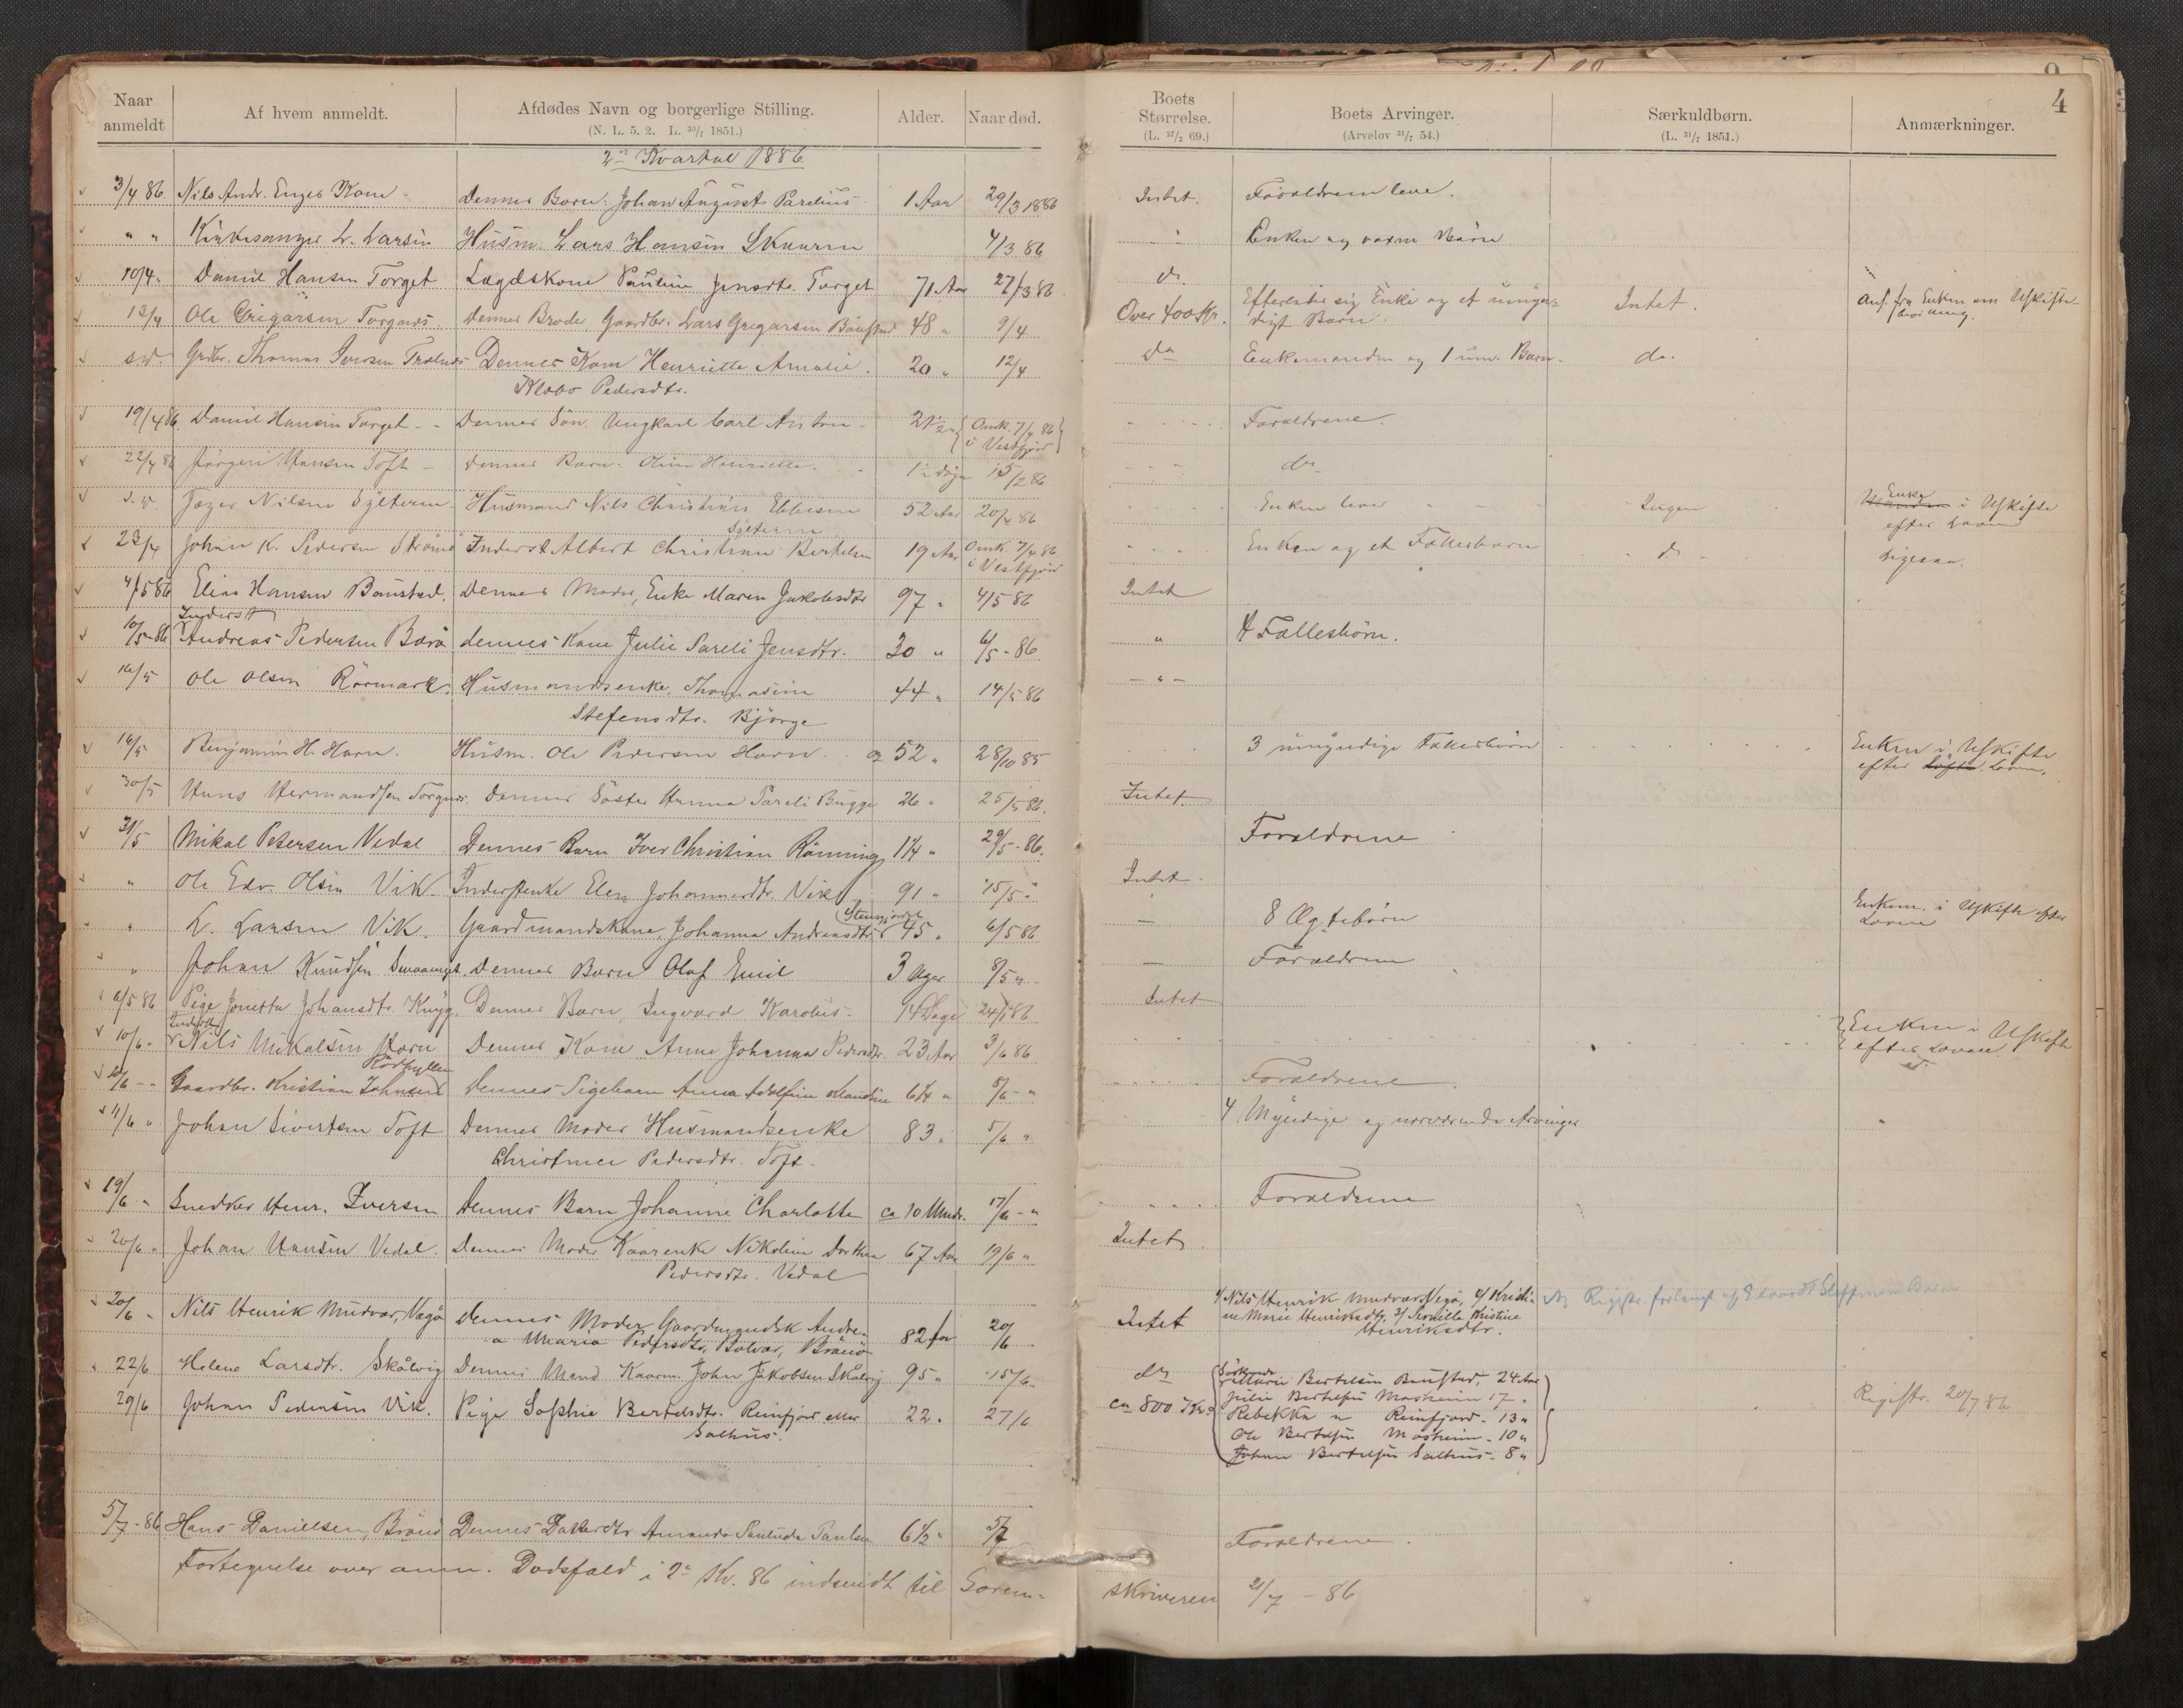 Naar anmeldt
Af hvem anmeldt.
Afdødes Navn og borgerlige Stilling.
(N. L. 5. 2. L. 30/7 1851.)
Alder.
Naar død.
Boets Størrelse.
(L. 27/3 69.)
Boets Arvinger.
(Arvelov 31/7 54.)
Særkuldbørn.
(L. 31/7 1851.)
Anmærkninger.
4
2det Kvartal 1886
3/4 86. Nils Andr. Enges Kone Dennes Barn: Johan August Parelius 1 Aar 29/3 1886 Intet. Foraldrene leve.
" " Kirkesanger L. Larsen Husm. Lars Hansen Skaaren 4/3 86 " Enken og voxne Børn
10/4 " Daniel Hansen Torget Lægdskone Pauline Jensdtr. Torget 71 Aar 27/3 86 do.
12/4 Ole Grigarsen Torgnes Dennes Broder Gaardbr. Lars Gregarsen Baustad 48 " 9/4 Over 400 Kr. Efterlader sig Enke og et umyn-
digt Barn. Intet. Ans. fra Enken om Uskifte-
bevilling.
s.d. Grdbr. Thomas Iversen Trælnes Dennes Kone Henriette Amalie 20 " 12/4 do Enkemanden og 1 um. Barn. do.
Klebo Pedersdtr.
19/4 86. Daniel Hansen Torget Dennes Søn Ungkarl Carl Anton 21 1/2 " Omk. 7/4 86 i Vestfjord Foraldrene.
22/4 86 Jørgen Hansen Toft dennes Barn: Oline Henriette 1 1/2 døgn 15/2 86 do
s.d. Jæger Nilsen Sylteren Husmand Nils Christian Ebbesen 52 Aar 20/4 86 Enken lever Ingen Enke i Uskifte
Sylteren efter Loven
23/4 Johan K. Pedersen Strømø Inderst Albert Christian Bertelsen 19 Aar Omk. 7/4 86 i Vestfjord Enken og et Fællesbarn do ligesaa.
4/5 86 Elias Hansen Baustad. Dennes Moder, Enke Maren Jakobsdtr 97 " 4/5 86 Intet
Inderst
10/5-86 Andreas Pedersen Barø dennes Kone Julie Pareli Jensdtr. 30 " 6/5-86 " 4 Fællesbørn.
16/5 Ole Olsen Rørmark Husmandsenke Thomasine 44 " 14/5 86 - " -
Stefensdtr. Bjørge
16/5 Benjamin H. Horn. Husm. Ole Pedersen Horn 52 " 28/10 85 3 umyndige Fællesbørn Enken i Uskifte
efter Loven.
30/5 Hans Hermandsen Torgnes. Dennes Søster Hanna Pareli Bugge 26 " 25/5 86. Intet.
31/5 Mikal Petersen Vedal Dennes Barn Iver Christian Rønning 1 1/4 " 29/5-86. Foraldrene
" Ole Edv. Olsen Vik. Inderstenke Elen Johannesdtr. Vik 91 " 15/5 " Intet
" L. Larsen Vik. Gaardmandskone Johanna Andreasdtr 45 " 6/5 86 — 8 Ægtebørn Enkem. i Uskifte efter
Loven
" Johan Knudsen Dennes Barn Olaf Emil 3 Uger 8/5 " — Foraldrene
6/5 86 Pige Jonetta Johansdtr. Dennes Barn Ingvard Karolius 14 Dage 24/1 86 Intet
Inderst
10/6 " Nils Mikalsen Horn Dennes Kone Anne Johanna Pedersdtr. 23 Aar 3/6 86 Enkem i Uskifte
efter Loven
Rødhyllen
10/6 - " Gaardbr. Kristian Johnsen Dennes Pigebarn Anna Adolfine 6 1/4 " 5/6 - " Foraldrene
11/6 " Johan Sivertsen Toft Dennes Moder Husmandsenke 83 " 5/6 " 4 Myndige og nærværende Arvinger
Pedersdtr. Toft.
19/6 " Snedker Henr. Iversen Dennes Barn Johanne Charlotte ca 10 Mndr. 17/6 - " Foraldrene
20/6 " Johan Hansen Vedal. Dennes Moder Kaarenke Nikoline Dorthea 67 Aar 19/6 " Intet
Pedersdtr. Vedal
20/6 " Nils Henrik Mudvær, Vegø Dennes Moder Gaardmandsk Andre- 82 Aar 20/6 Intet 1/ Nils Henrik Mudvær, Vegø, 2/ Kristi-
a Maria Pedersdtr. Bolvær, Brønø ne Marie Henriksdtr. 3/ Pernille Kristine
Henriksdtr.
22/6 Helene Larsdtr. Skålvig Dennes Mand Kaarm. John Jakobsen Skålvig 95 " 15/6 do
29/6 Johan Pedersen Vik. Pige Sophie Bertelsdtr. Reinfjord eller 22 " 27/6 ca 800 Kr. Søskende
Salhus. Marie Bertelsen Baustad, 24 Aar
Julie Bertelsen Mosheim 17 "
Rebekka " Reinfjord - 13 "
Ole Bertelsen Mosheim - 10 "
Johan Bertelsen Salhus - 8 "
Registr. 20/7 86
5/7-86 Hans Danielsen, Brønø Dennes Datterdtr. Amanda Paulsen 6 1/2 " 5/7 Foraldrene.
Fortegnelse over anm. Dødsfald i 2det Kv. 86 indsendt til Soren-
skriveren 21/7 - 86